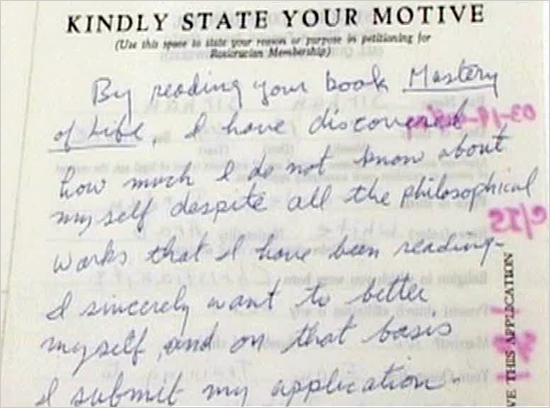 KINDLY STATE YOUR MOTIVE
(Use this space to state your reason or purpose in petitioning for
Rosicrucian Membership)
By reading your book Mastery
of Life, I have discovered
how much I do not know about
myself despite all the philosophical
works that I have been reading.
I sincerely want to better
myself, and on that basis
I submit my application.
VE THIS APPLICATION